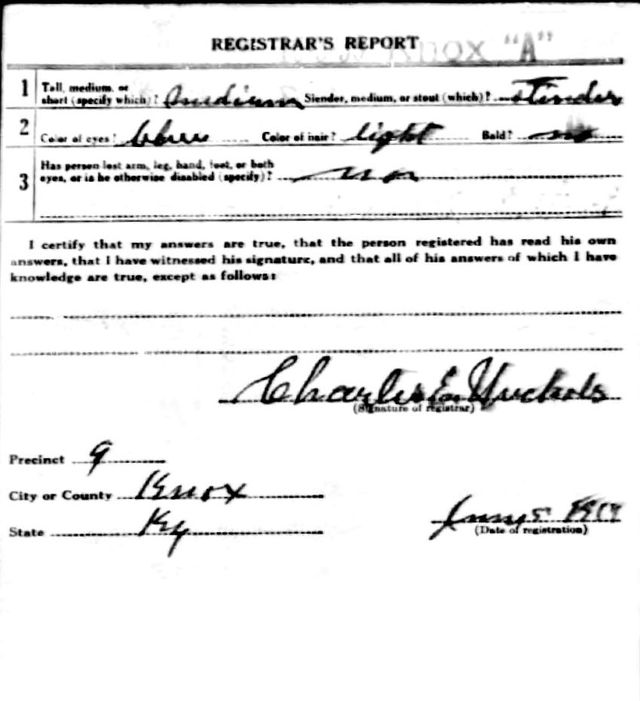 REGISTRAR'S REPORT KNOX "A"
1 Tall, medium, or short (specify which)? medium Slender, medium, or stout (which)? Slender
2 Color of eyes? blue Color of hair? light Bald? no
3 Has person lost arm, leg, hand, foot, or both
eyes, or is he otherwise disabled (specify)?
I certify that my answers are true, that the person registered has read his own
answers, that I have witnessed his signature, and that all of his answers of which I have
knowledge are true, except as follows:
Charles E. Nuckols
(Signature of registrar)
Precinct 9
City or County Knox
State Ky
June 5 1917
(Date of registration)